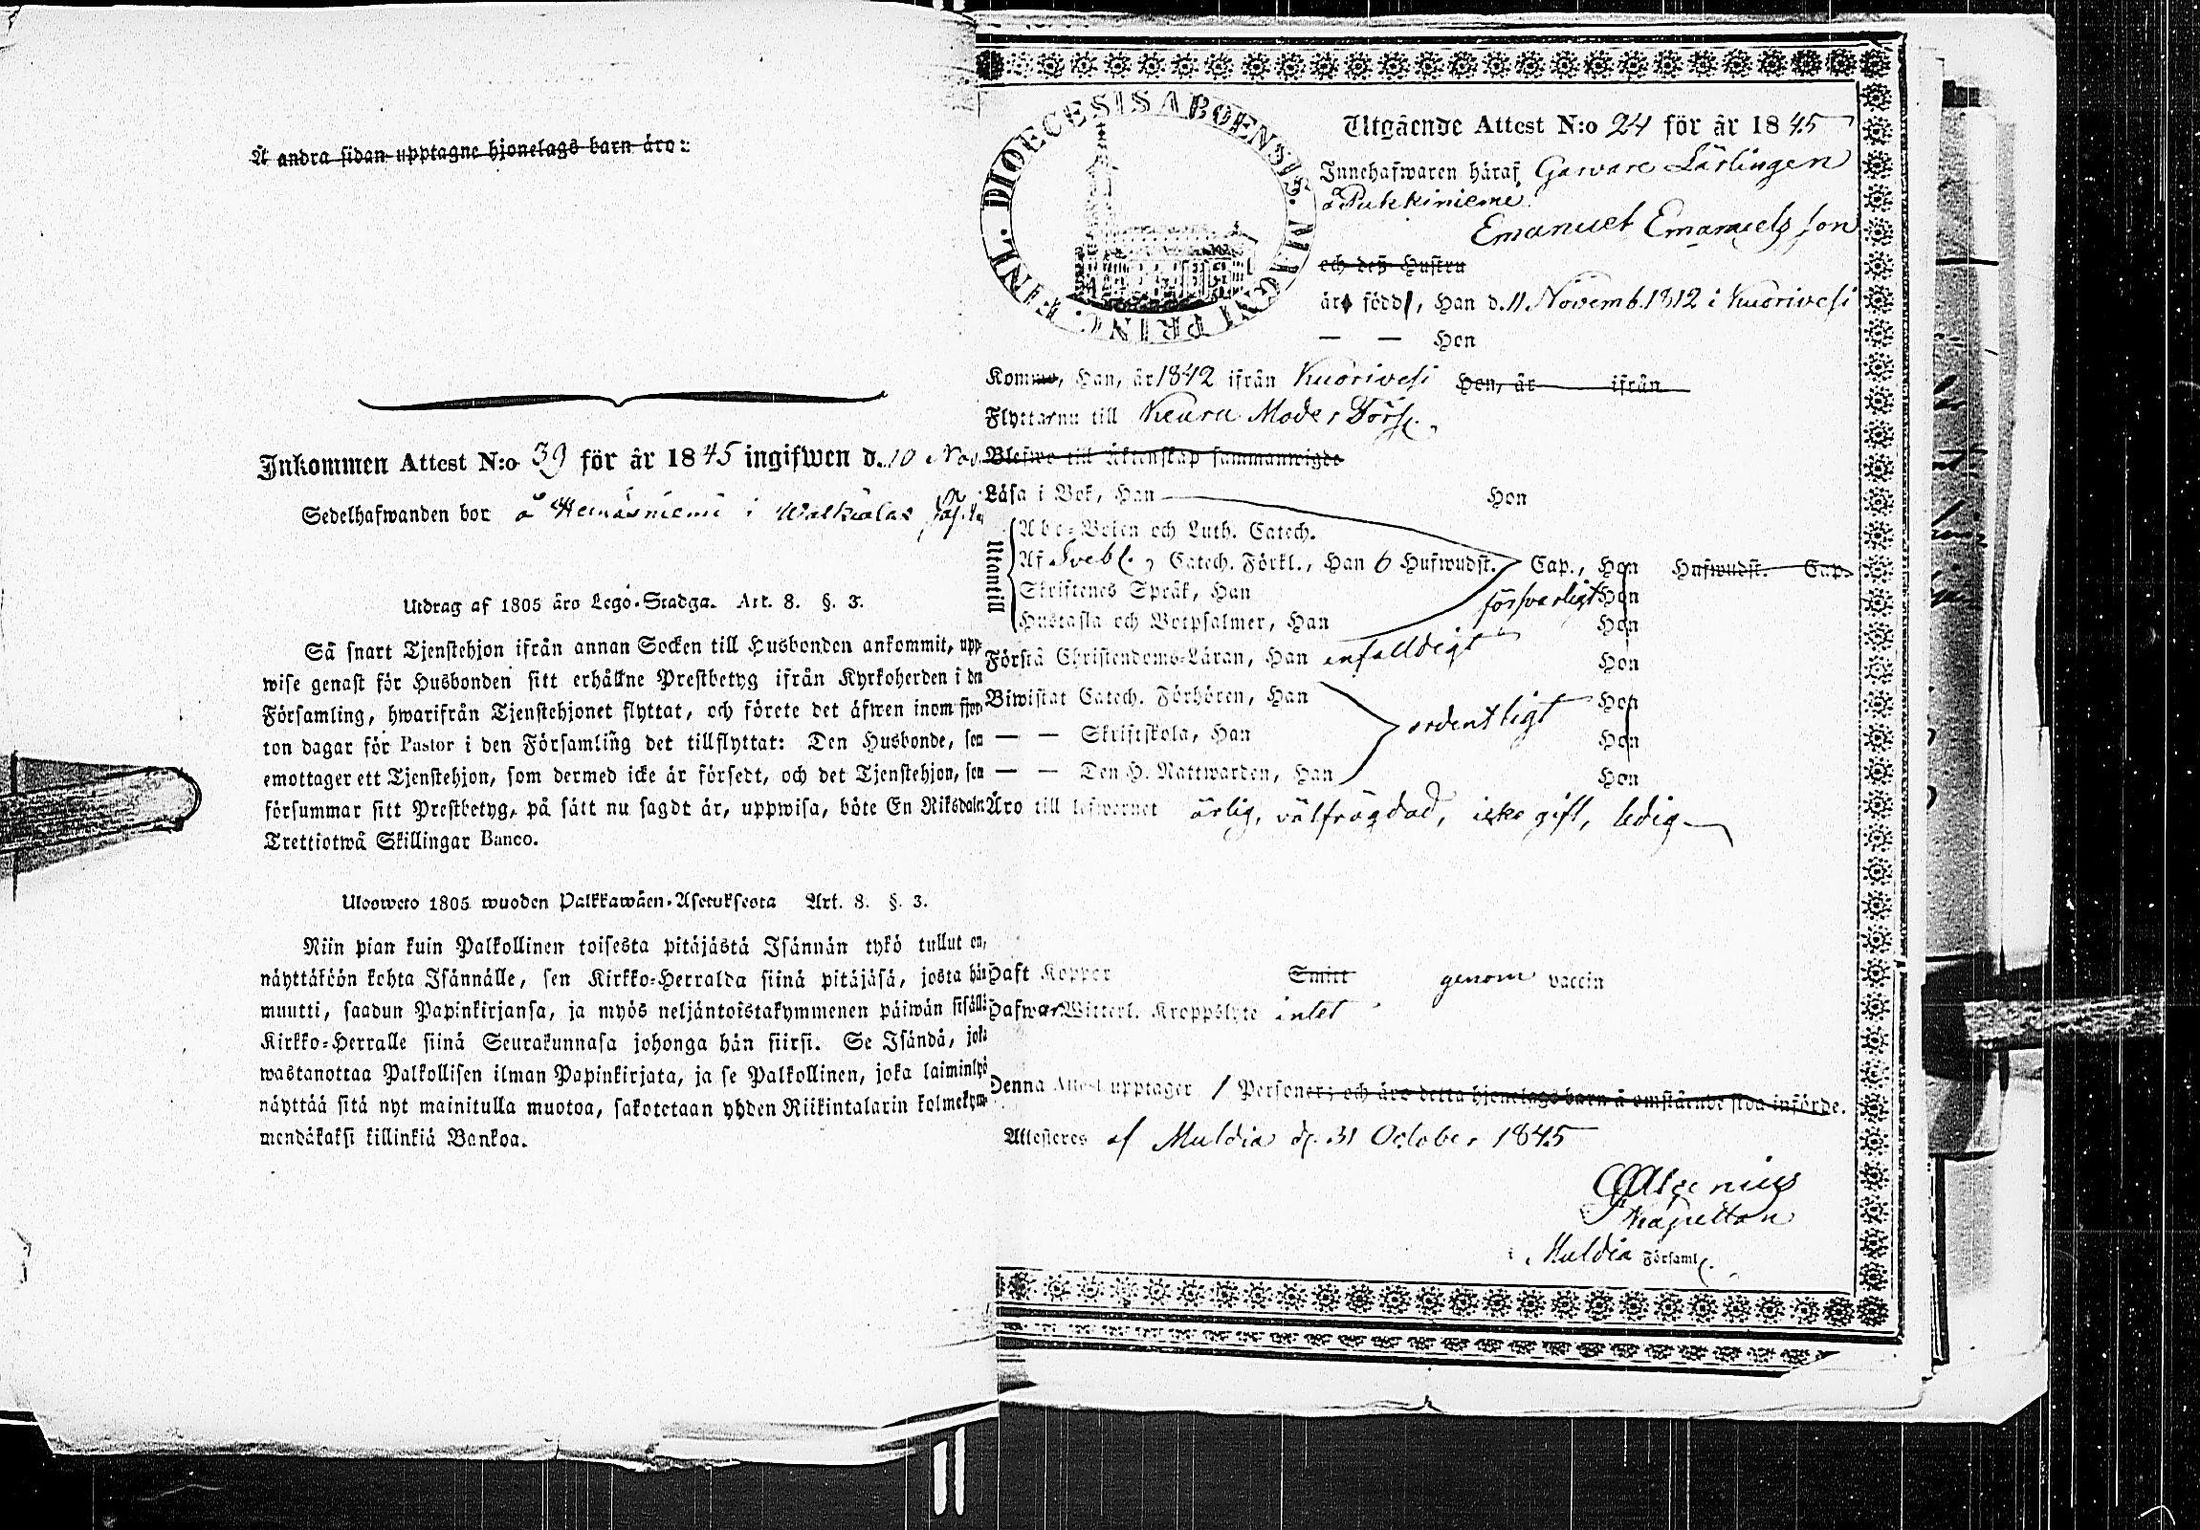 Å andra sidan upptagne hjonelags barn äro:
Inkommen Attest N:o 39 för år 1845 ingifwen d. 10 Nov
Sedelhafwanden bor å i
Utdrag af 1805 åro Lego-Stadga. Art. 8. §. 3.
Så snart Tjenstehjon ifrån annan Socken till Husbonden ankommit, upp-
wise genast för Husbonden sitt erhållne Prestbetyg ifrån Kyrkoherden i den
Församling, hwarifrån Tjenstehjonet flyttat, och förete det äfwen inom fjor-
ton dagar för Pastor i den Församling det tillflyttat: Den Husbonde, som
emottager ett Tjenstehjon, som dermed icke är försedt, och det Tjenstehjon, som
försummar sitt Prestbetyg, på sätt nu sagdt är, uppwisa, böte En Riksdaler
Trettiotwå Skillingar Banco.
Ulosweto 1805 wuoden Palkkawäen-Asetuksesta Art. 8. §. 3.
Niin pian kuin Palkollinen toisesta pitäjästä Isännän tykö tullut on,
näyttäköön kohta Isännälle, sen Kirkko-Herralda siinä pitäjäsä, josta hän
muutti, saadun Papinkirjansa, ja myös neljäntoistakymmenen päiwän sisällä
Kirkko-Herralle siinä Seurakunnasa johonga hän siirsi. Se Isändä, joka
wastanottaa Palkollisen ilman Papinkirjata, ja se Palkollinen, joka laiminlyö
näyttää sitä nyt mainitulla muotoa, sakotetaan yhden Riikintalarin kolmekym-
mendäkaksi killinkiä Bankoa.
FINL. DIOECESIS ABOENSIS. MAGNI PRINC.
Utgående Attest N:o 24 för år 1845
Innehafwaren häraf Garvare Lärlingen
å Pukkiniemi
Emanuel Emanuelsson
och deß Hustru
äro född, Han d. 11 Novemb. 1812 i Kuorivesi
— — Hon
Kommo, Han, år 1842 ifrån Kuorivesi Hon, år ifrån
Flyttar nu till Keuru Moder Förs.
Blefwo till Äktenskap sammanwigde
Läsa i Bok, Han Hon
Utantill
Abc-Boken och Luth. Catech.
Af Svebel. Catech. Förkl., Han 6 Hufwudst. Cap., Hon Hufwudst. Cap.
Skriftenes Språk, Han försvarligt Hon
Hustafla och Botpsalmer, Han Hon
Förstå Christendoms-Läran, Han enfalldigt Hon
Biwistat Catech. Förhören, Han ordentligt Hon
— — Skriftskola, Han Hon
— — Den H. Nattwarden, Han Hon
Äro till lefwernet ärlig, välfrägdad, icke gift, ledig
Haft Koppor Smitt genom vaccin
Hafwer Witterl. Kroppslyte intet
Denna Attest upptager 1 Personer; och äro detta hjonelags barn å omstående sida införde.
Attesteres af Muldia d. 31 October 1845
Kapellan
i Muldia Församl.